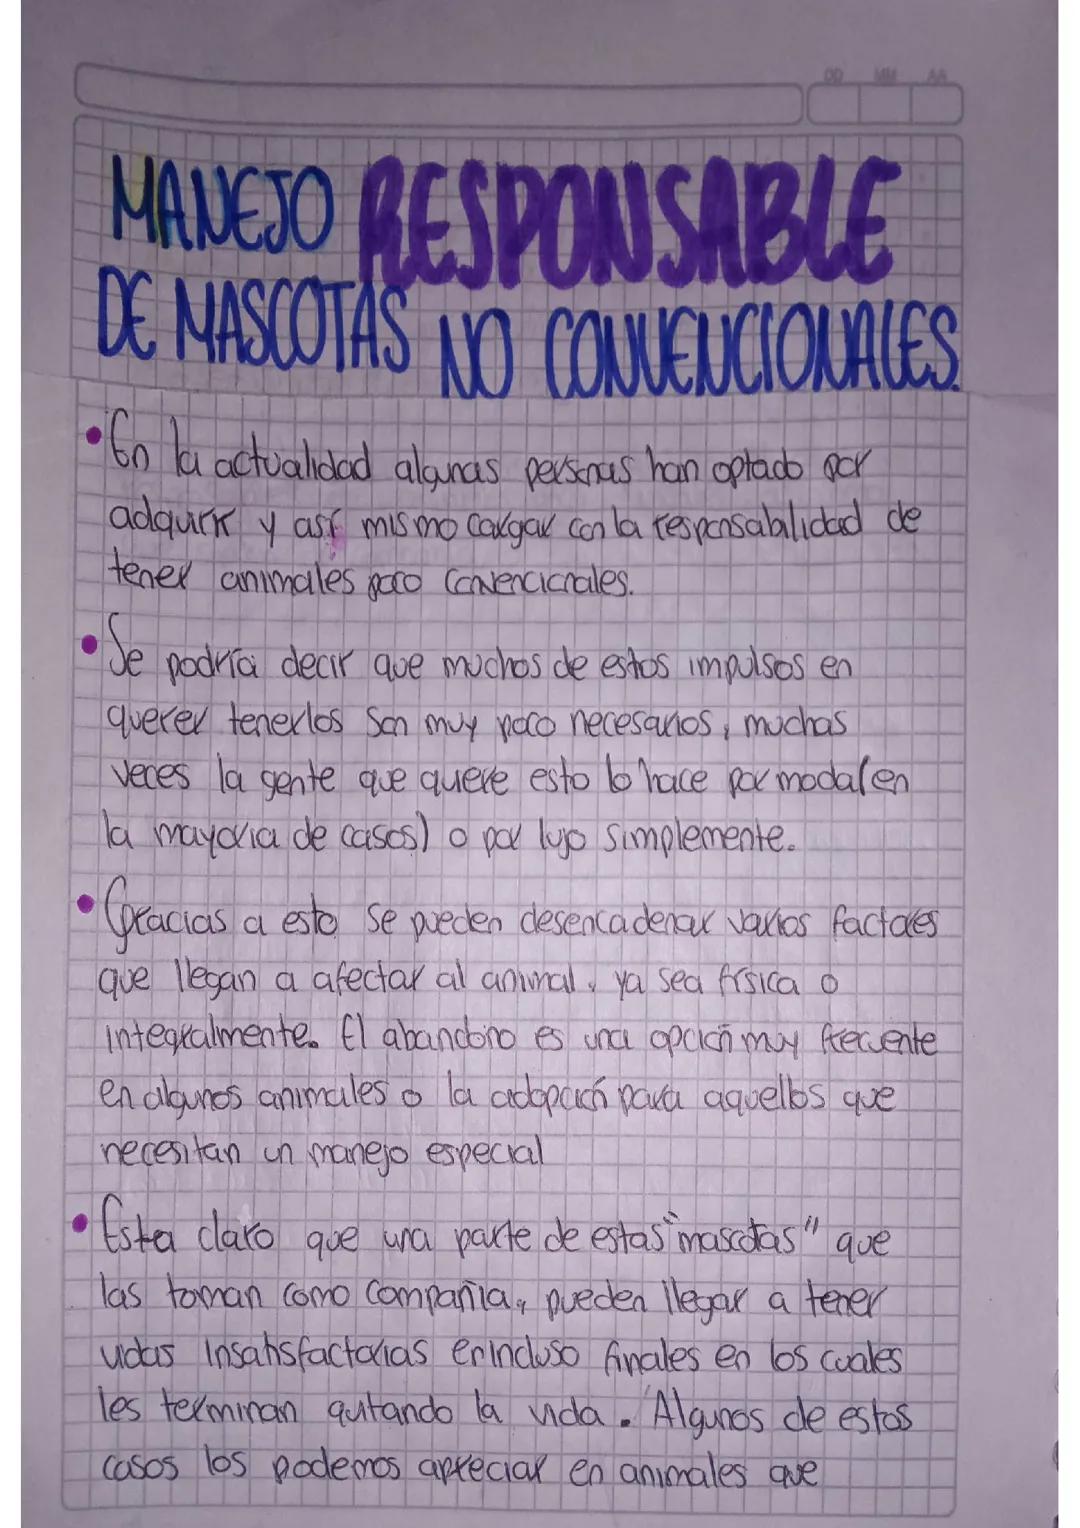 DD MM AA
MANEJO RESPONSABLE
DE MASCOTAS NO CONVENCIONALES.
•En la actualidad algunas personas han optado por
adquirir y así mismo cargar con la responsabilidad de
tener animales poco convencionales.
•Se podría decir que muchos de estos impulsos en
querer tenerlos son muy poco necesarios, muchas
veces la gente que quiere esto lo hace por moda(en
la mayoria de casos) o por lujo simplemente.
•Gracias a esto se pueden desencadenar varios factores
que llegan a afectar al animal, ya sea física o
integralmente. El abandono es una opción muy frecuente
en algunos animales o la adopción para aquellos que
necesitan un manejo especial
•Esta claro que una parte de estas "mascotas" que
las toman como compañia, pueden llegar a tener
vidas insatisfactorias e incluso finales en los cuales
les terminan quitando la vida. Algunos de estos
casos los podemos apreciar en animales que